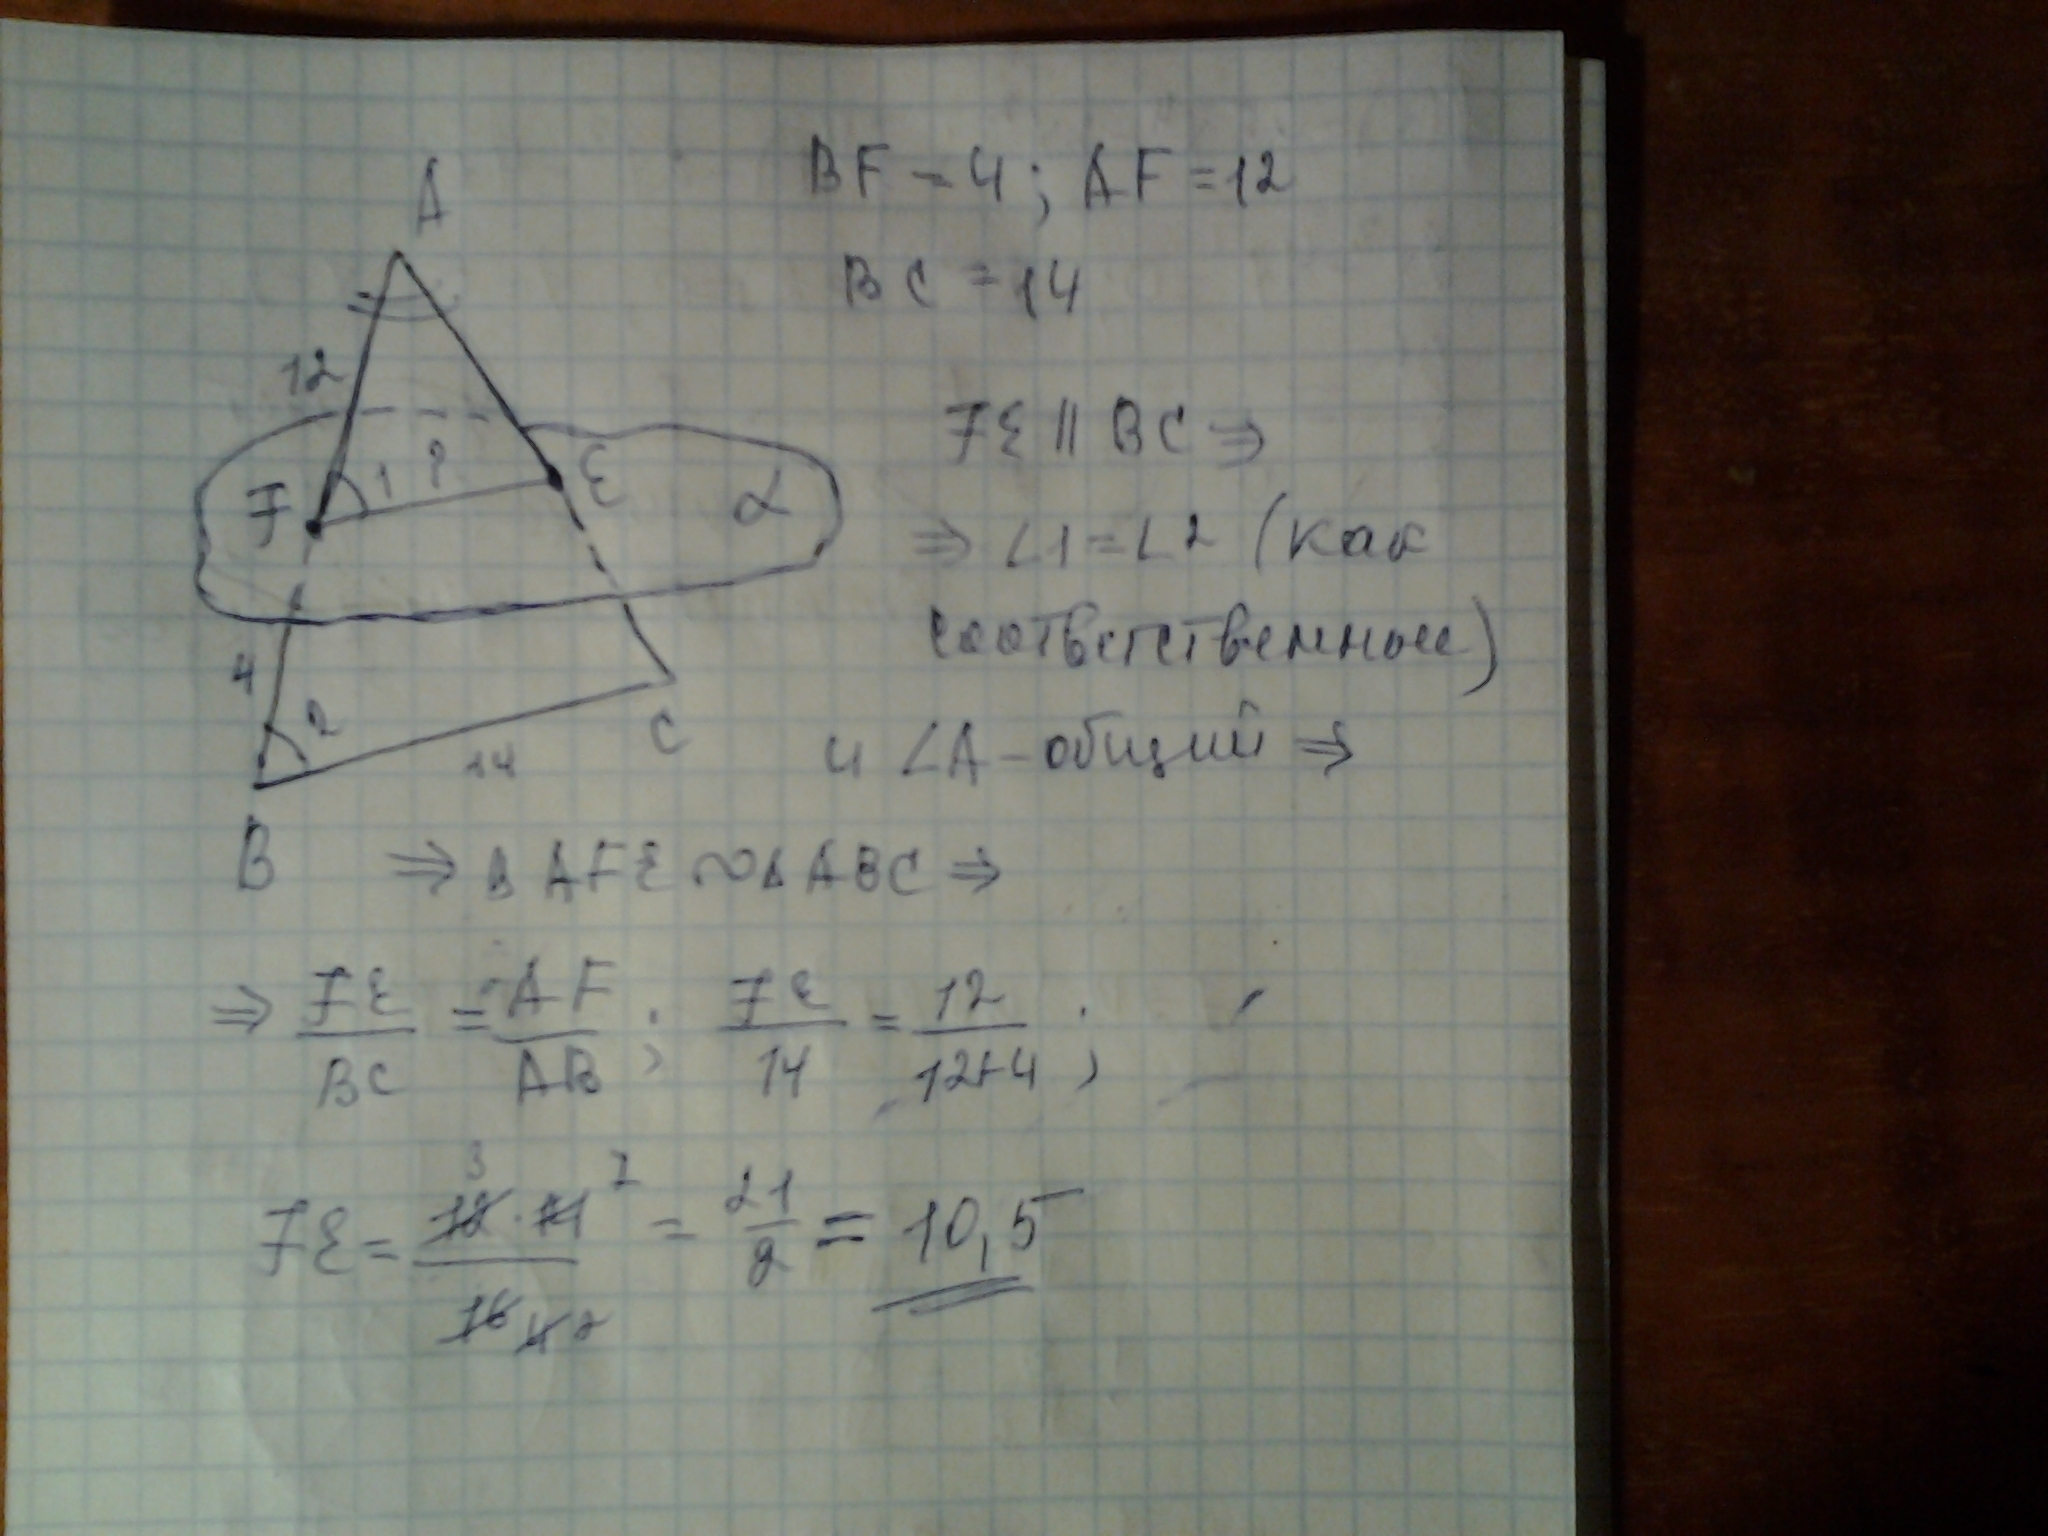 A
BF = 4; AF = 12
BC = 14
12
FE || BC ⇒
F 1 ? E α
⇒ ∠1 = ∠2 (как
соответственные)
4
2
C
14
и ∠A - общий ⇒
B
⇒ Δ AFE ∾ Δ ABC ⇒
⇒ FE/BC = AF/AB; FE/14 = 12/(12+4);
FE = (12·14)/16 = 21/2 = 10,5
3 7
4 2